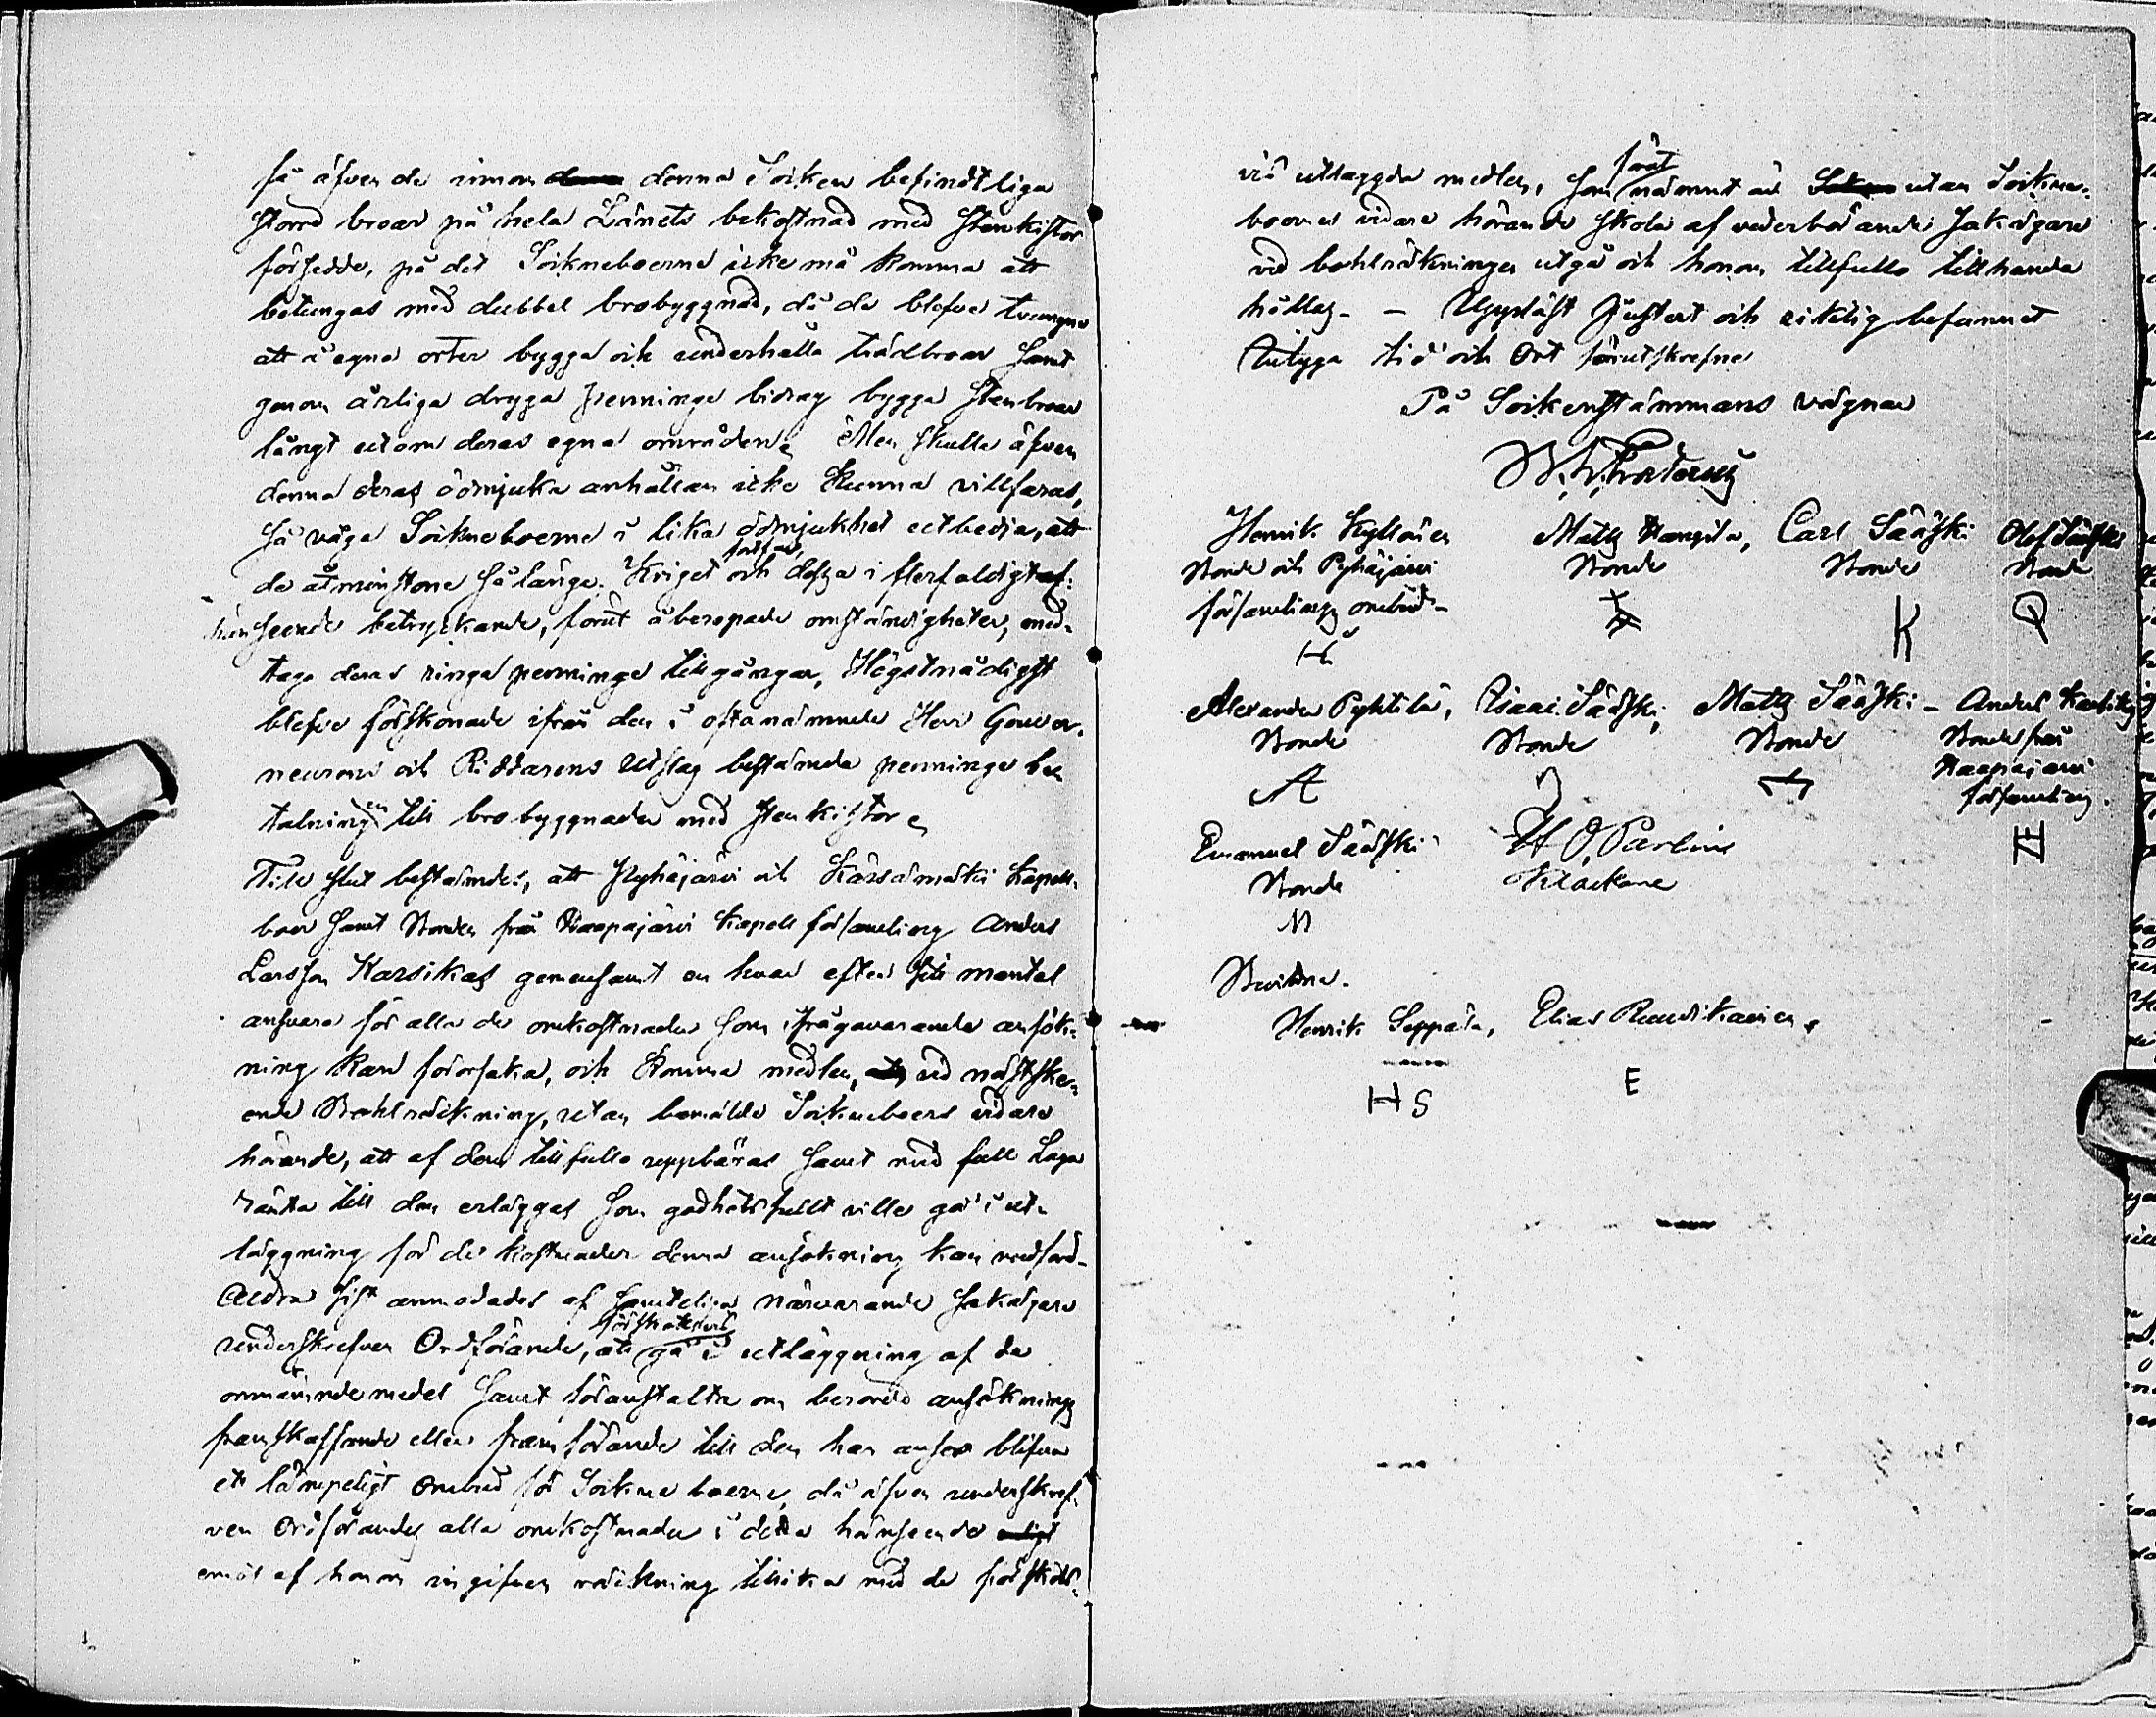 få äfven de innom denna Soiken befindtliga
Stora broar på hela Länets bekostnad med Stenkistor
försedde, på det Sokneboerne icke må komma att
betungas med dubbel brobyggnad, då de blefve tvungne
att i egna orter bygga och underhålla trädbroar samt
genom årliga dryga penninge bidrag bygga stenbroar
långt utom deras egna områden. Men skulle äfven
denna deras ödmjuka anhållan icke kunna villfaras,
så våga Sokneboerne i lika ödmjukhet utbedja, att
de åtminstone så länge Kriget fortfar, och dessa i flerfaldigt af-
hänseende betryckande, förut åberopade omständigheter, med-
tage deras ringa penninge tillgångar, Högstnådigst
blefve förskonade ifrån den i oftanämnde Herr Gouver-
neurens och Riddarens Utslag bestämda penninge be-
talningen till brobyggnader med stenkistor
Till slut bestämdes, att Pyhäjärvi och Kärsämäki Kapell-
boer samt Bonden från Haapajärvi Kapell församling Anders
Larsson Karsikas gemensamt en hvar efter sitt mantal
ansvara för alla de omkostnader som ifrågavarande ansök-
ning kan förorsaka, och komma medlen, vid nästske-
ende Bohlräkning, utan bemälde Sokneboers vidare
hörande, att af dem tillfullo uppbäras samt med full Laga
ränta till den erläggas som godhetsfullt ville gå i ut-
läggning för de kostnader denna ansökning kan medföra
Aldra sist anmodades af samtelige närvarande Sakägare
underskrefven Ordförande, att förskottsvis gå i utläggning af de
omnämnde medel samt föranstalta om berörde ansöknings
framskaffande eller framförande till den han anser blifva
ett lämpeligt Ombud för Sokneboerne, då äfven underskref-
ven Ordförandes alla omkostnader i detta hänseende
emot af honom ingifven räkning tillika med de förskotts-
vis utlaggda medlen, som förut nämnt är utan Sokne-
boernes vidare hörande skola af vederbörande Sakägare
vid bohlräkningen utgå och honom tillfullo tillhanda
hållas. — Uppläst Justert och riktig befunnet
betyga tid och Ort förutskrefne
På Sockenstämmans vägnar
Henrik Kyllöinen Matts Kampila, Carl Sääski Olof Sääski
Bonde och Pyhäjärvi Bonde Bonde Bonde
församlings ombud
H K
Alexander Pyhtilä, Isaac Sääski, Matts Sääski - Anders Karsikas
Bonde Bonde Bonde Bonde från
Haapajärvi
A församling
Emanuel Sääski
Bonde Klockare
M
Bevittna.
Henrik Seppälä, Elias Ruuskainen,
HS E